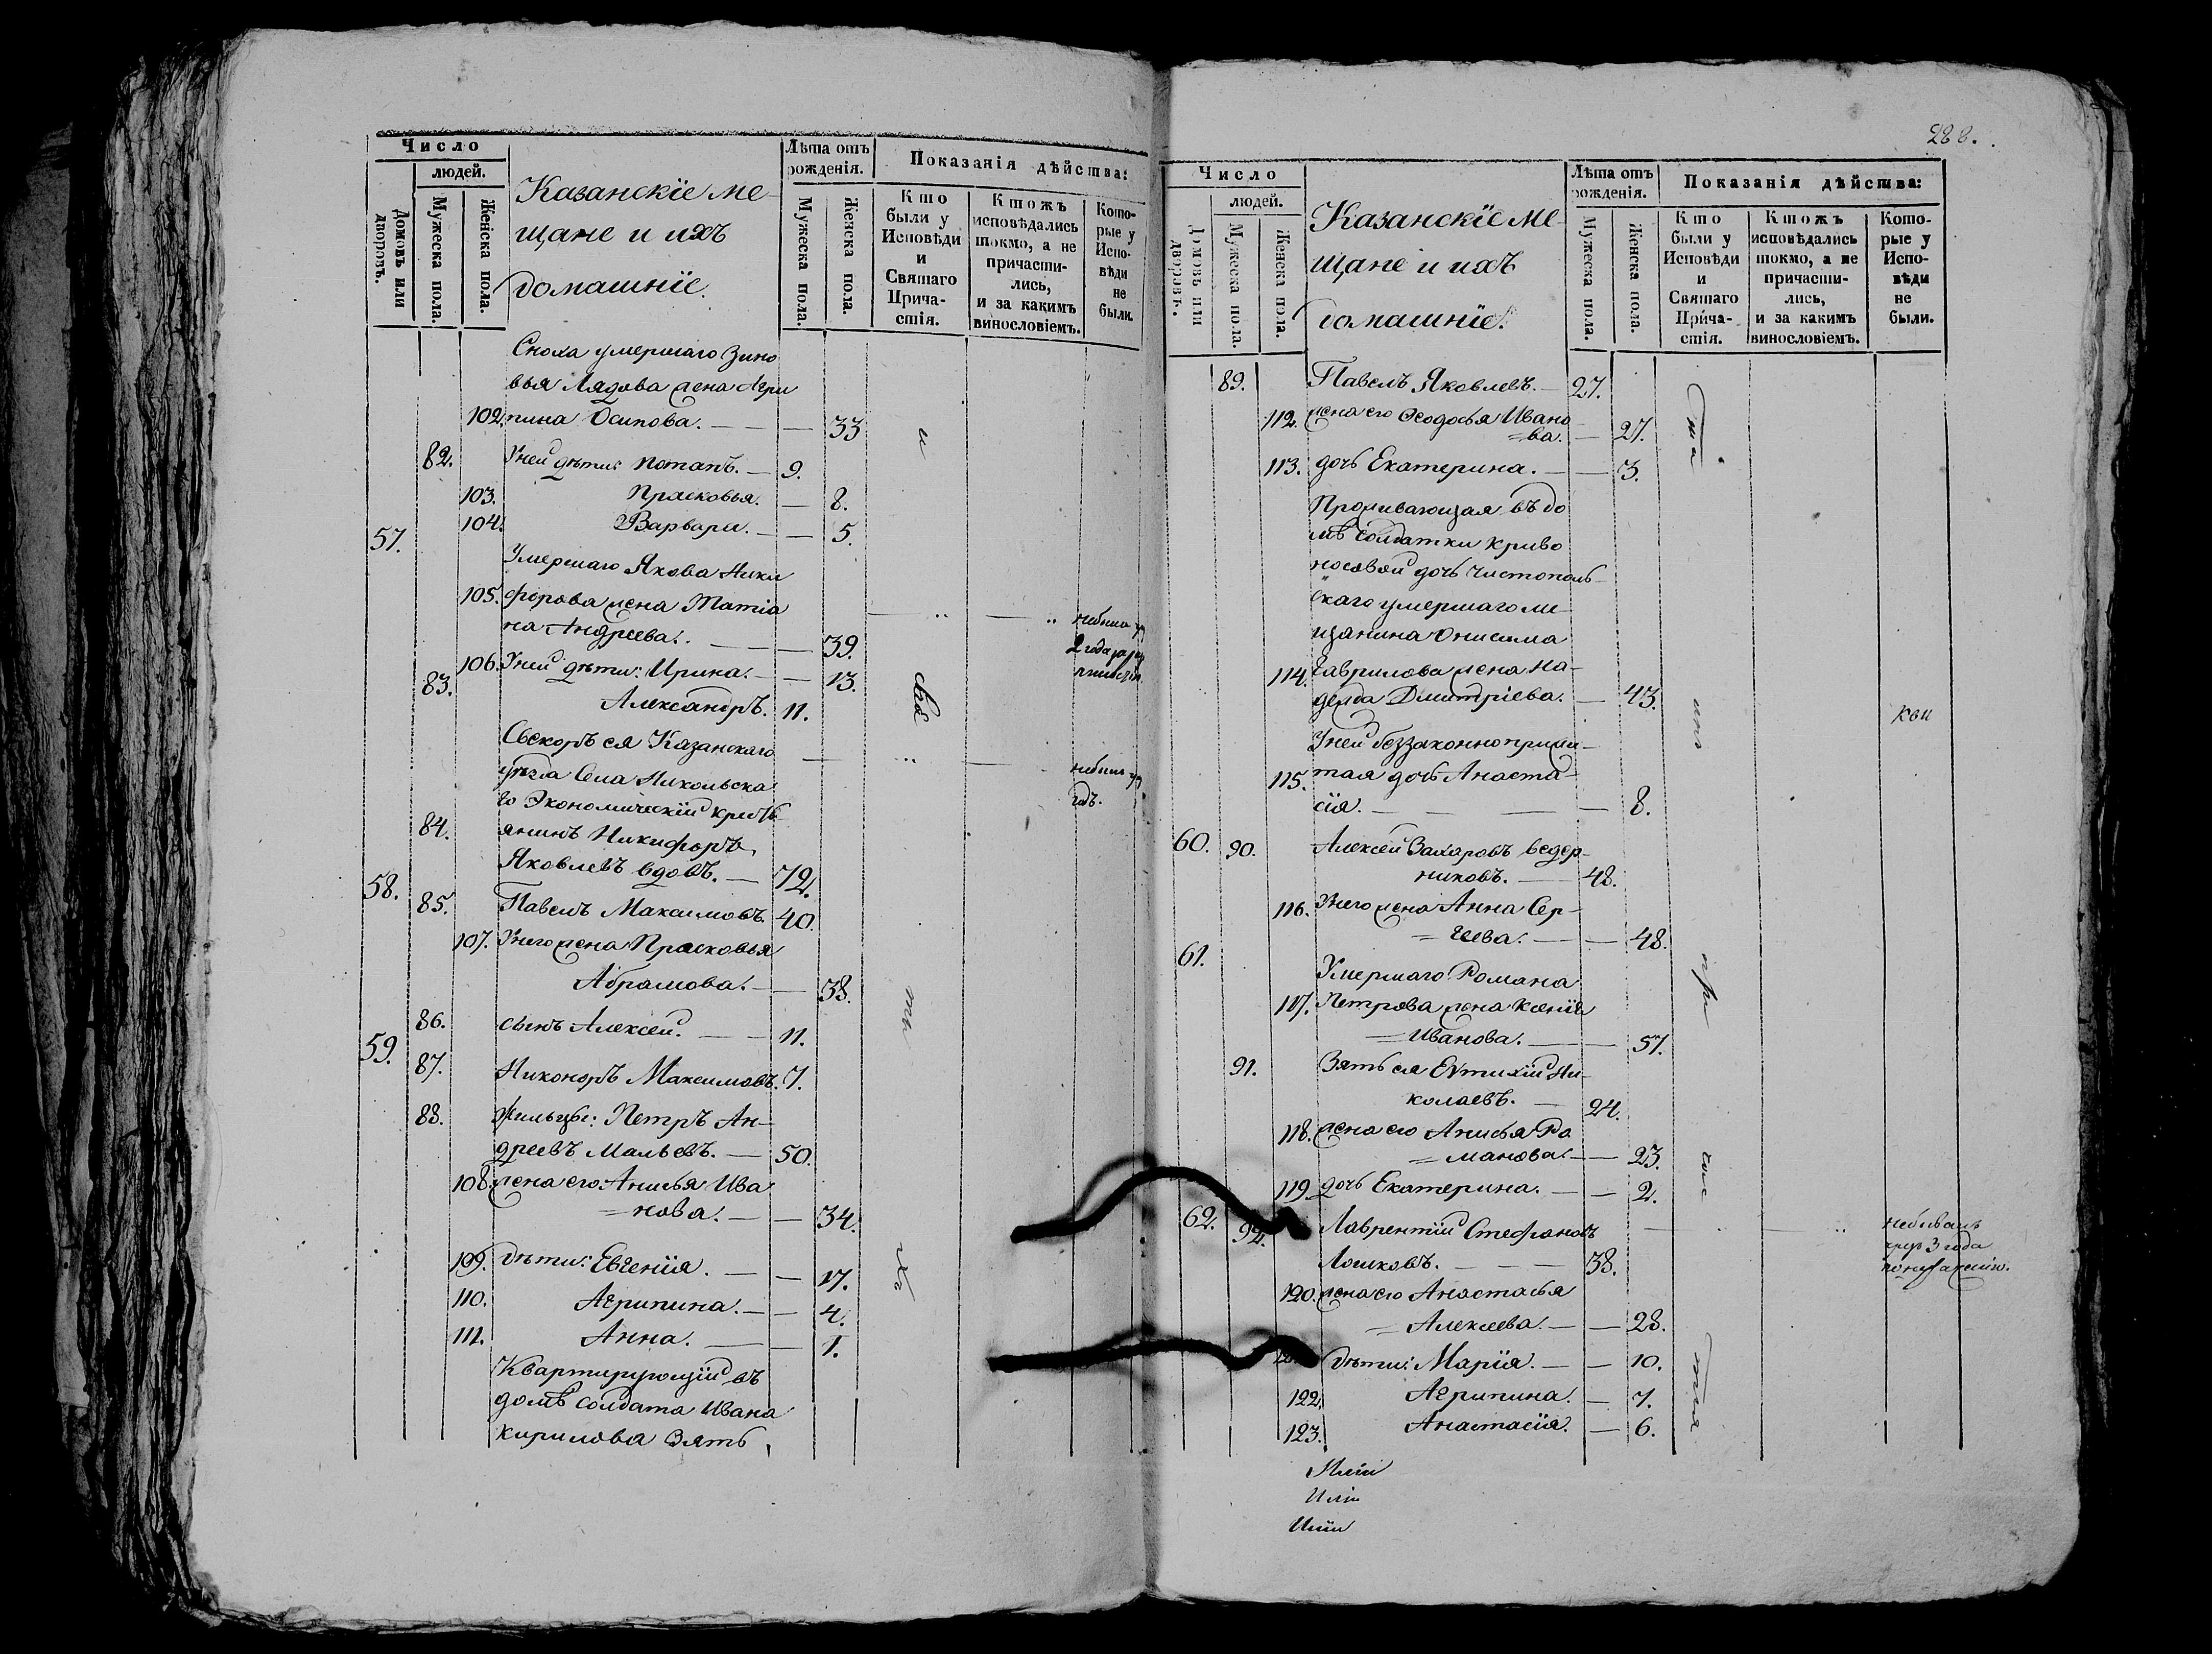 Число
людей.
Домовъ или дворовъ.
Мужеска пола.
Женска пола.
Казанскїе ме-
щане и ихъ
домашнїе.
Лѣта отъ
рожденія.
Мужеска пола.
Женска пола.
Показанія дѣйства:
Кто
были у
Исповѣди
и
Святаго
Прича-
стія.
Ктожъ
исповѣдались
токмо, а не
причасти-
лись,
и за какимъ
винословіемъ.
Кото-
рые у
Испо-
вѣди
не
были.
Сноха умершаго Зино
вья Лядова жена Агри
102. пина Осипова. — — — 33
82. У ней дѣти: Потапъ. — 9.
103. Прасковья. — 8.
104. Варвара. — — 5.
57.
Умершаго Якова Ники
105. форова жена Татїа
на Андреева. — — 39.
2 года
106. У ней дѣти: Ирина. — — 13.
83. Александръ. 11.
Свекоръ ея Казанскаго
уѣзда Села Никольска
го Экономическїй кресть
84. янинъ Никифоръ
Яковлевъ вдовъ. — 72.
годъ.
58. 85. Павелъ Максимовъ. 40.
107. У него жена Прасковья
Абрамова. — — 38.
86. сынъ Алексей. — — 11.
59. 87. Никоноръ Максимовъ. 7.
88. Жильцы: Петръ Ан-
дреевъ Мальевъ. — 50.
108. жена его Анисья Ива
=нова. — — 34.
109. дѣти: Евгенїя. — — 17.
110. Агрипина. — — 4.
111. Анна. — — 1.
Квартирующїй въ
домѣ солдата Ивана
Кирилова зять,
и
свѧ
ты
хъ
288.
Число
людей.
Домовъ или дворовъ.
Мужеска пола.
Женска пола.
Казанскїе ме-
щане и ихъ
домашнїе.
Лѣта отъ
рожденія.
Мужеска пола.
Женска пола.
Показанія дѣйства:
Кто
были у
Исповѣди
и
Святаго
Прича-
стія.
Ктожъ
исповѣдались
токмо, а не
причасти-
лись,
и за какимъ
винословіемъ.
Кото-
рые у
Испо-
вѣди
не
были.
89. Павелъ Яковлевъ. — 27.
112. жена его Ѳеодосья Ивано
=ва. — 27.
113. дочь Екатерина. — — 3.
Проживающая въ до
мѣ солдатки Криво
носовой дочь Чистополь-
скаго умершаго ме-
щанина Онисима
114. Гаврилова жена На-
дежда Дмитрїева. — 43.
У ней беззаконноприжи-
115. тая дочь Анаста-
сїя. — — — 8.
60. 90. Алексей Захаровъ Ведер-
никовъ. — 48.
116. У него жена Анна Сер-
=геева. — — 48.
61.
Умершаго Романа
117. Петрова жена Ксенїя
=Иванова. — — 57.
91. Зять ея Евтихїй Ни-
колаевъ. — 24.
118. жена его Анисья Ро
=манова. — — 23.
119. дочь Екатерина. — — 2.
62. 92. Лаврентїй Стефановъ
Лошковъ. — — — 38.
небывалъ
чрез 3 года
120. жена его Анастасья
=Алексеева. — — 28.
дѣти: Марїя. — — 10.
122. Агрипина. — 7.
123. Анастасїя. — 6.
при
час